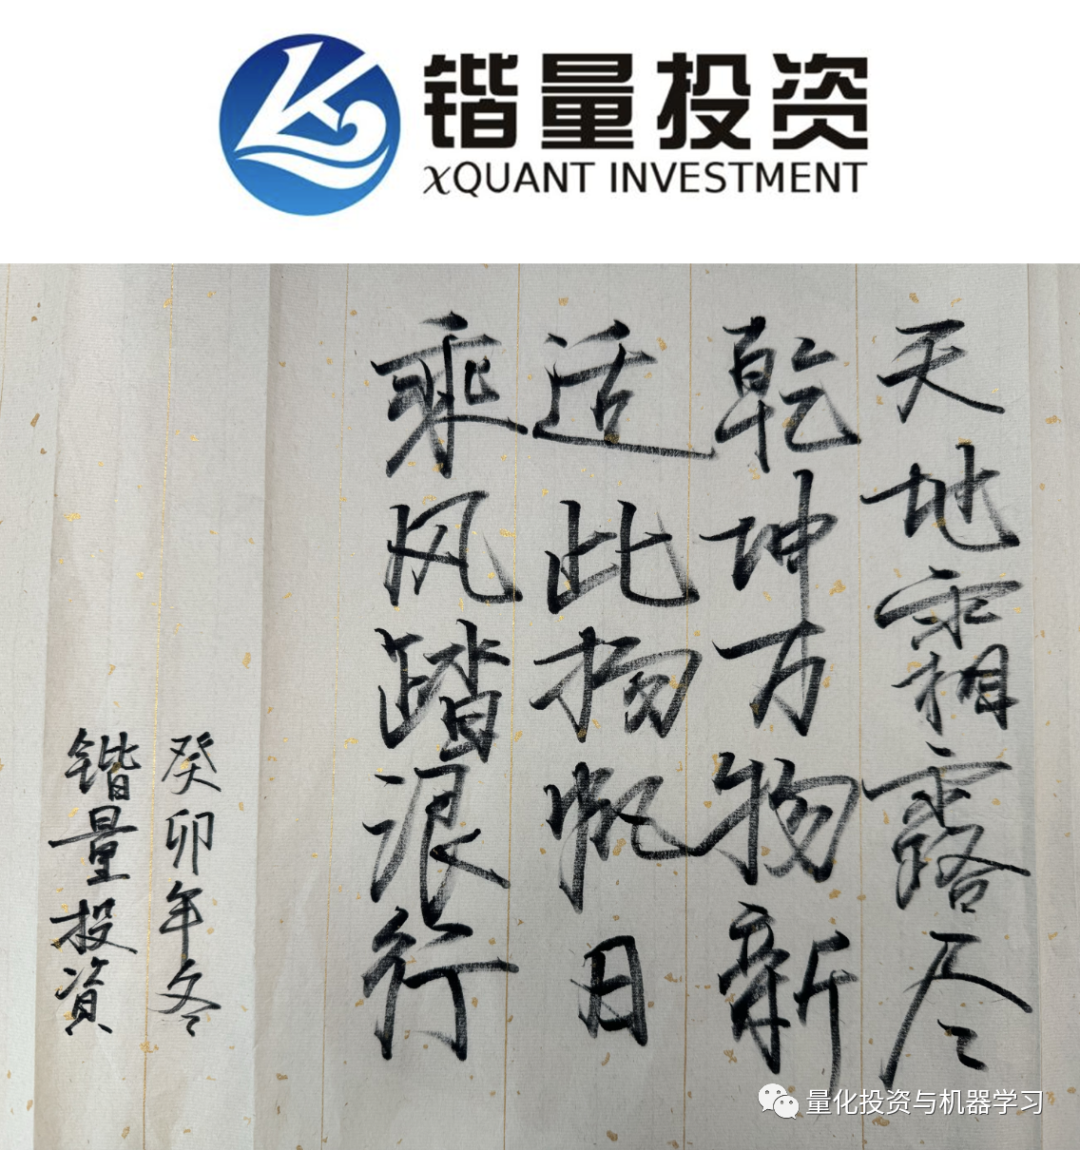 锴量投资
χQUANT INVESTMENT
天地霜露尽
乾坤万物新
适此扬帆日
乘风踏浪行
癸卯年冬
锴量投資
量化投资与机器学习